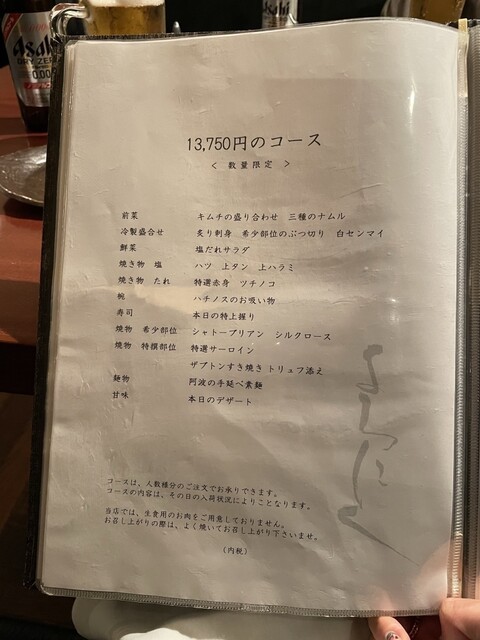 Asahi
DRY ZERO
0.00
Asahi
13,750円のコース
< 数量限定 >
前菜 キムチの盛り合わせ 三種のナムル
冷製盛合せ 炙り刺身 希少部位のぶつ切り 白センマイ
鮮菜 塩だれサラダ
焼き物 塩 ハツ 上タン 上ハラミ
焼き物 たれ 特選赤身 ツチノコ
椀 ハチノスのお吸い物
寿司 本日の特上握り
焼物 希少部位 シャトーブリアン シルクロース
焼物 特撰部位 特選サーロイン
ザブトンすき焼き トリュフ添え
麺物 阿波の手延べ素麺
甘味 本日のデザート
コースは、人数様分のご注文でお承りできます。
コースの内容は、その日の入荷状況によりことなります。
当店では、生食用のお肉をご用意しておりません。
お召し上がりの際は、よく焼いてお召し上がり下さいませ。
(内税)